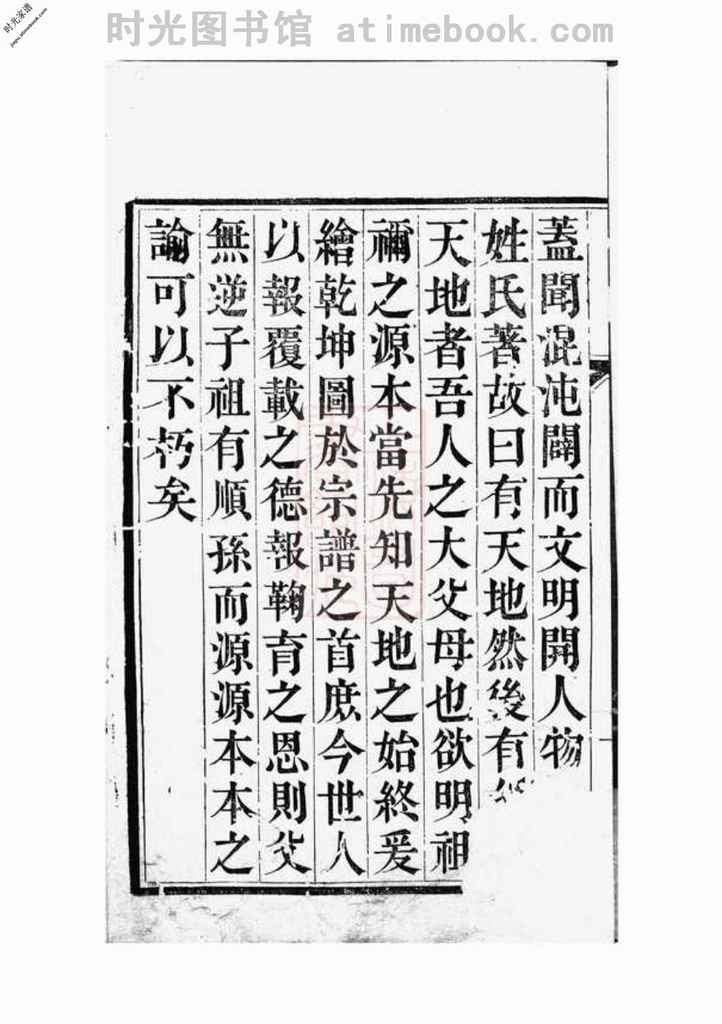 时光家谱
jiapu.atimebook.com
时光图书馆 atimebook.com
蓋聞混沌闢而文明開人物
姓氏著故曰有天地然後有
天地者吾人之大父母也欲明祖
禰之源本當先知天地之始終爰
繪乾坤圖於宗譜之首庶今世人
以報覆載之德報鞠育之恩則父
無逆子祖有順孫而源源本本之
諭可以不朽矣